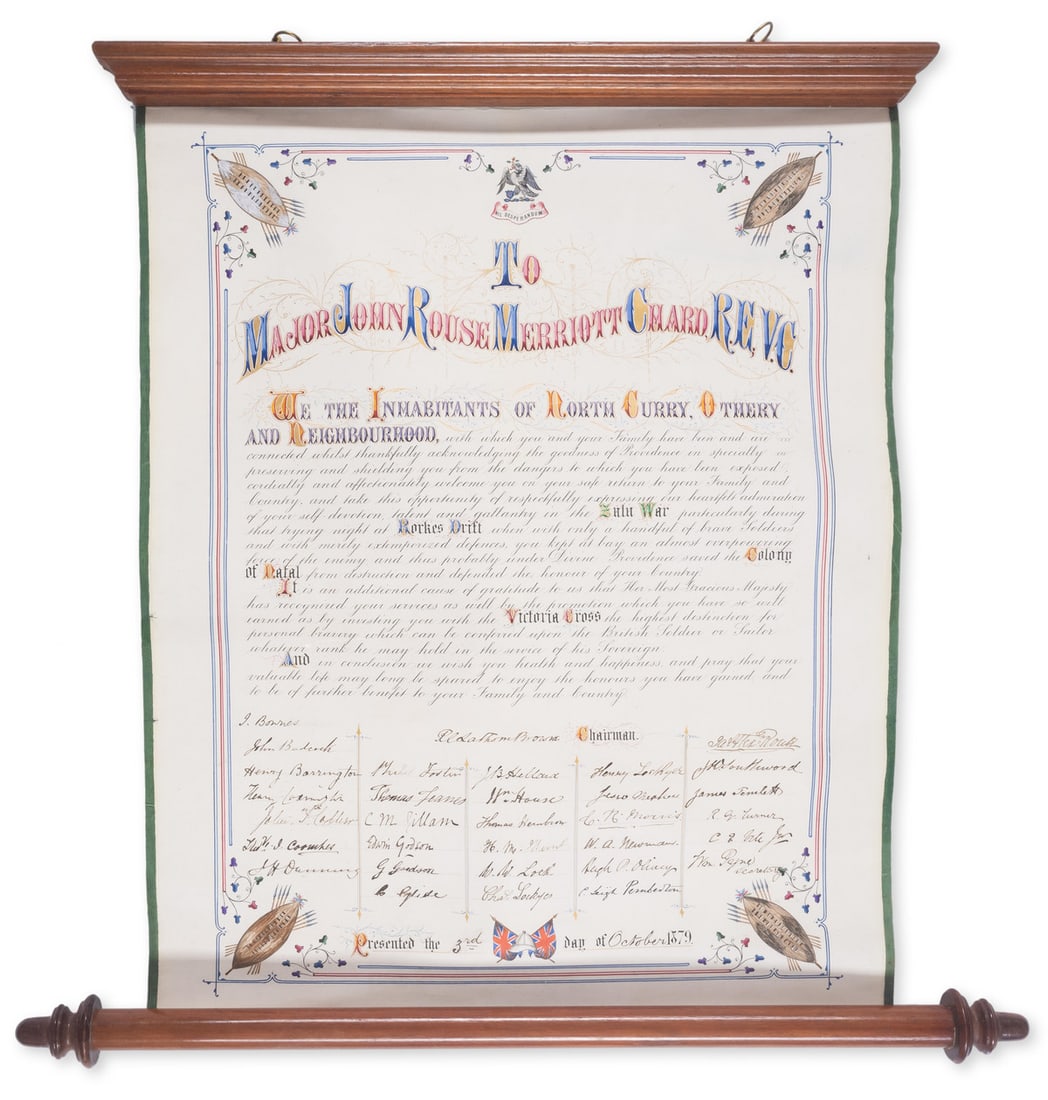 NIL DESPERANDUM
TO
MAJOR JOHN ROUSE MERRIOTT CHARD, R.E., V.C.
WE THE INHABITANTS OF NORTH CURRY, OTHERY
AND NEIGHBOURHOOD, with which you and your Family have been and are so
connected whilst thankfully acknowledging the goodness of Providence in specially
preserving and shielding you from the dangers to which you have been exposed,
cordially and affectionately welcome you on your safe return to your Family and
Country, and take this opportunity of respectfully expressing our heartfelt admiration
of your self devotion, talent and gallantry in the Zulu War particularly during
that trying night at Rorkes Drift when with only a handful of brave Soldiers
and with merely extemporized defences, you kept at bay an almost overpowering
force of the enemy and thus probably under Divine Providence saved the Colony
of Natal from destruction and defended the honour of your Country.
It is an additional cause of gratitude to us that Her Most Gracious Majesty
has recognized your services as well by the promotion which you have so well
earned as by investing you with the Victoria Cross the highest distinction for
personal bravery which can be conferred upon the British Soldier or Sailor
whatever rank he may hold in the service of his Sovereign.
And in conclusion we wish you health and happiness, and pray that your
valuable life may long be spared to enjoy the honours you have gained and
to be of further benefit to your Family and Country.
Chairman.
John
Henry Barrington
Thomas
J B
Henry Lockyer
J H Southwood
Henry
Wm House
James
C M Gillam
Thomas
C. R. Morris
Turner
Coombes
Edwin Godson
H. M.
W. A. Newman
J H
G Godson
W. W. Lock
Hugh P.
Wm Pyne
Chas Lockyer
C Leigh Pemberton
Presented the 3rd day of October 1879.